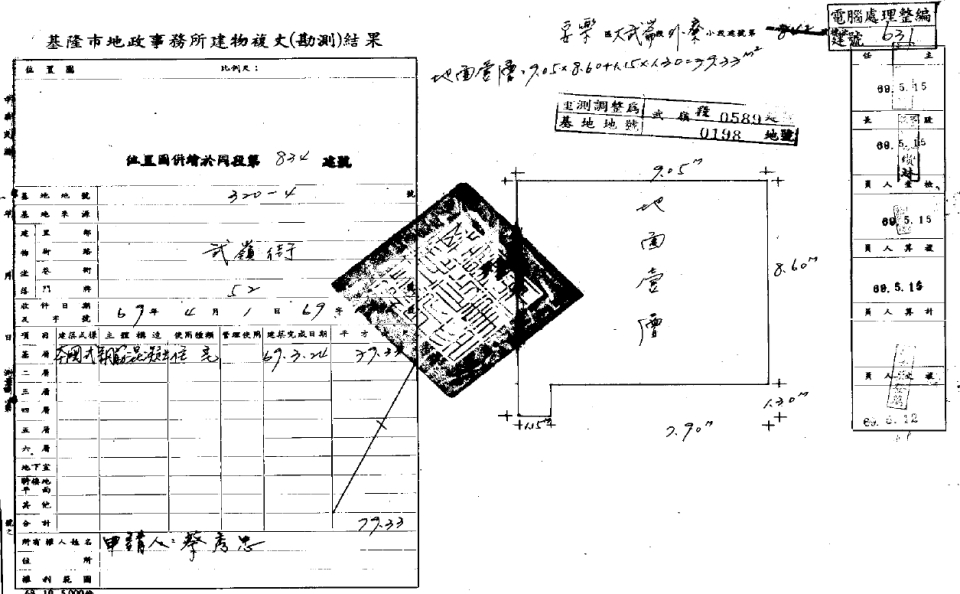 基隆市地政事務所建物複丈(勘測)結果
電腦處理整編
建號 631
安樂區大武崙段外寮小段建號第 842
地面壹層:9.05×8.60+1.15×1.30=79.33 m²
重測調整為 武嶺段 0589建號
基地地號 0198 地號
位置圖 比例尺:
位置圖併繪於同段第 834 建號
基地地號 320-4 號
基地來源
建物坐落
街路 武嶺街
巷衖
門牌 52 號
收件日期及字號 69年4月1日69年
項目 建築式樣 主體構造 使用種類 管理使用 建築完成日期 平方公尺
基層 本國式 鋼筋混凝土 住宅 69.3.24 79.33
二層
三層
四層
五層
六層
地下室
騎樓地平面
其他
合計 79.33
所有權人姓名 申請人:蔡秀忠
住所
權利範圍
9.05m
地面壹層
8.60m
1.30m
1.15m
7.90m
主任
69.5.15
股長
69.5.15
檢查人員
69.5.15
覆算人員
69.5.15
計算人員
69.5.12